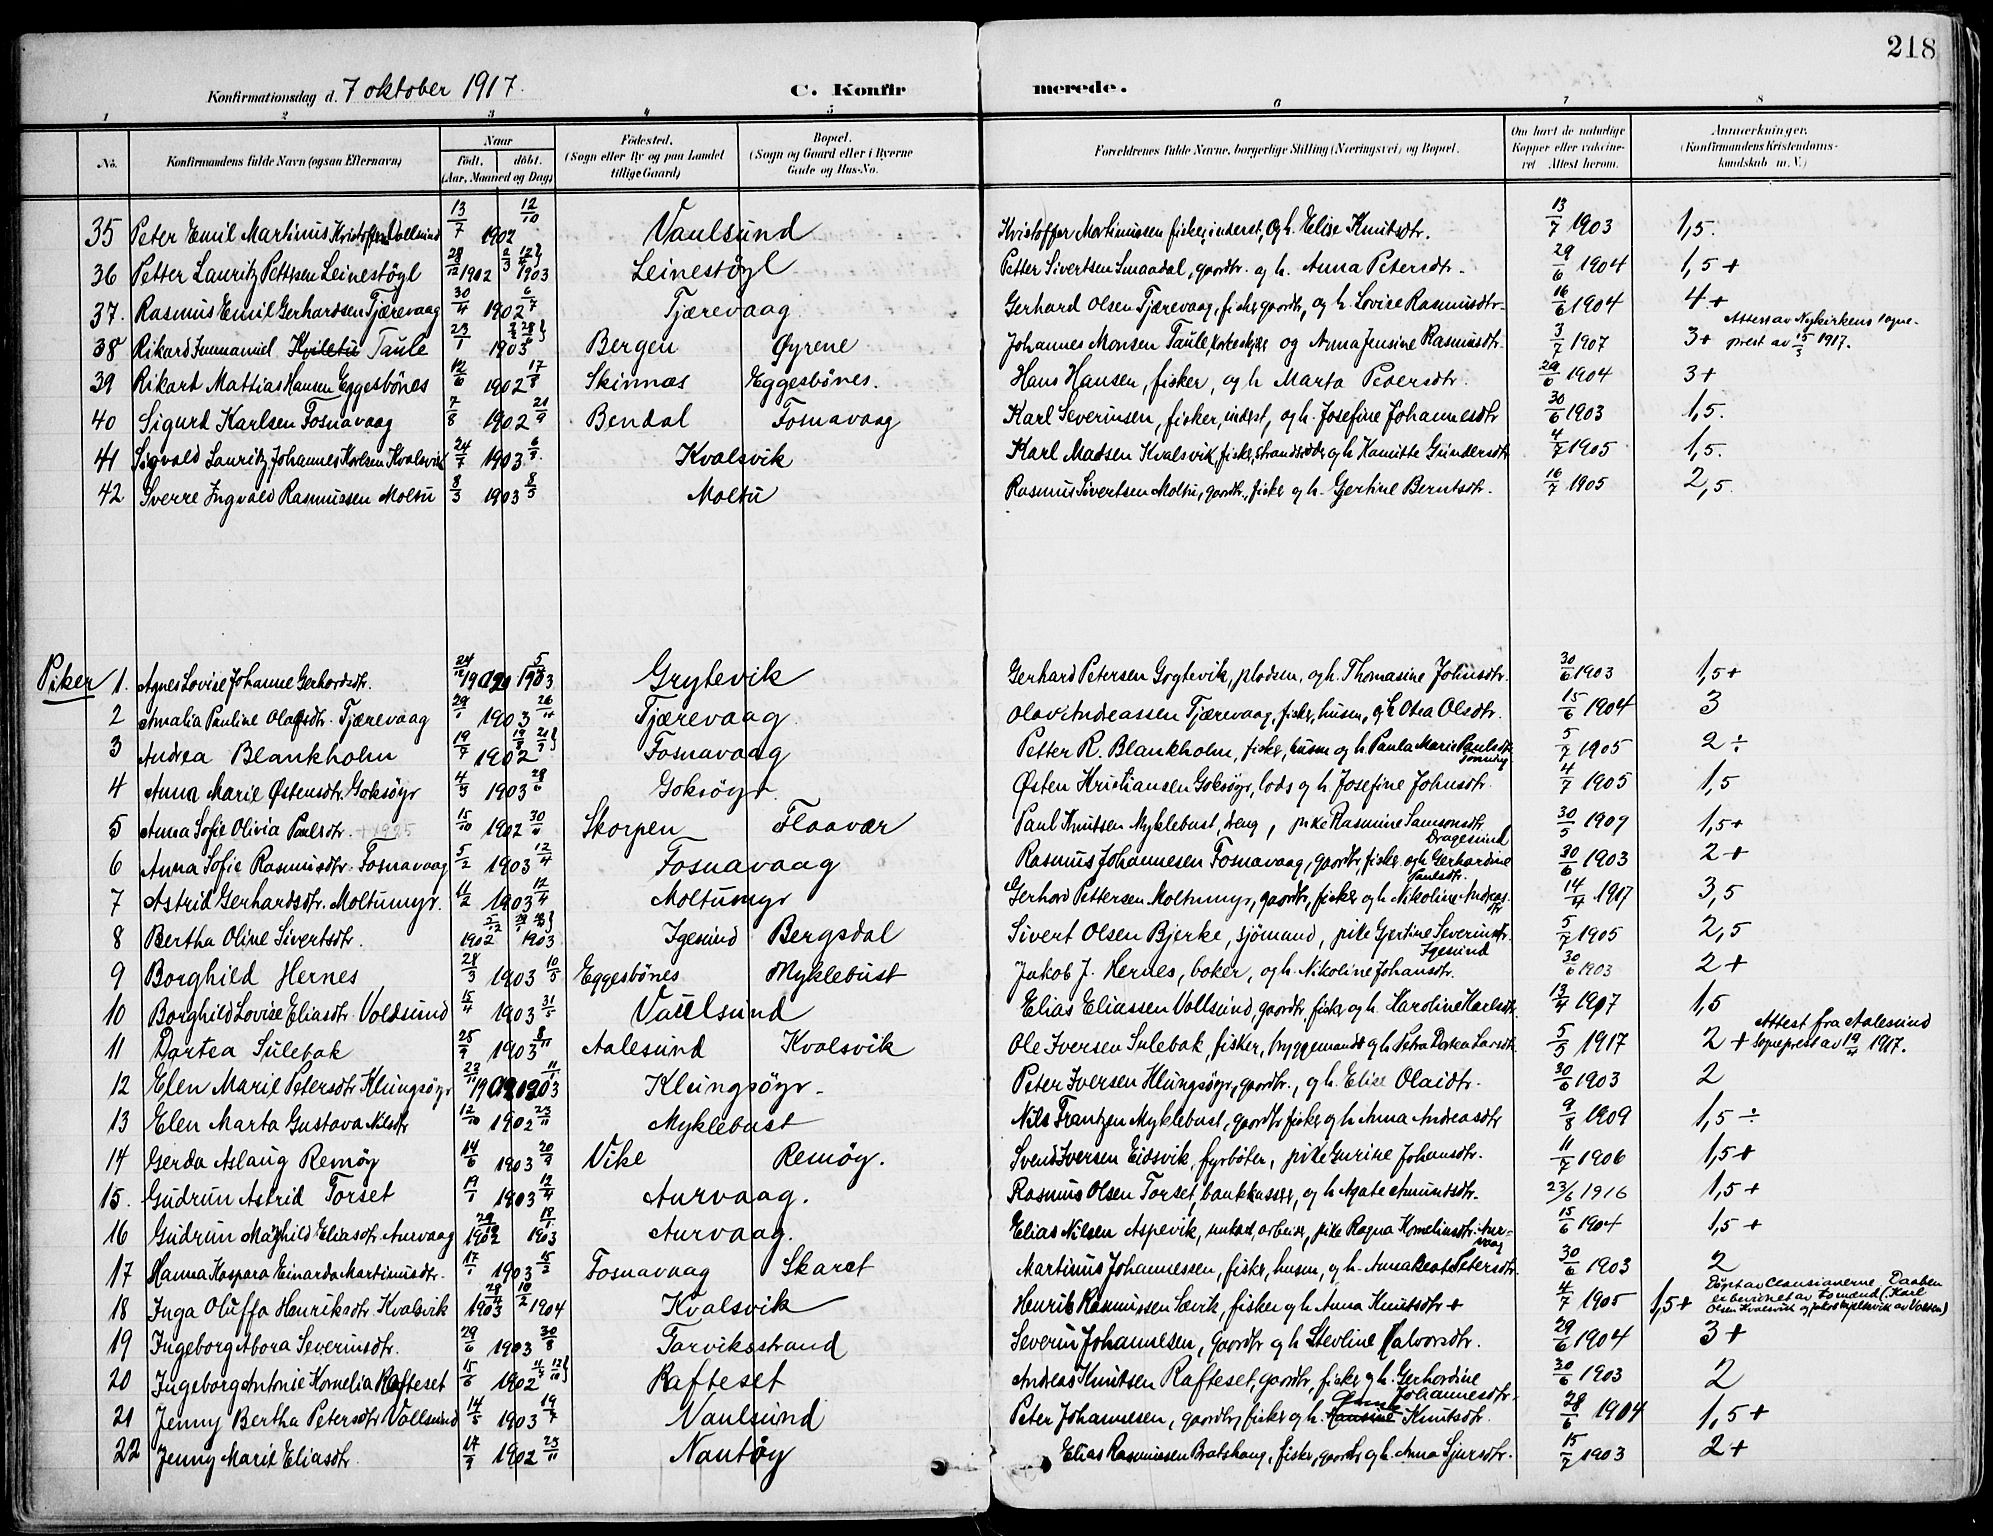 218
Konfirmationsdag d. 7 oktober 1917. C. Konfirmerede.
1 2 3 4 5 6 7 8
No. Konfirmandens fulde Navn (ogsaa Efternavn) Naar født. døbt. (Aar, Maaned og Dag) Fødested. (Sogn eller By og paa Landet tillige Gaard) Bopæl. (Sogn og Gaard eller i Byerne Gade og Hus-No. Forældrenes fulde Navne, borgerlige Stilling (Næringsvei) og Bopæl. Om havt de naturlige Kopper eller vaccineret Attest herom. Anmærkninger. (Konfirmandens Kristendomskundskab m. V.)
35 Peter Emil Martinus Kristoffersen Vollsund 13/7 1902 12/10 Vaulsund Kristoffer Martinussen fisker, inderst, og h. Elise Knutsdtr. 13/7 1903 1,5.
36 Petter Lauritz Pettersen Leinestøyl 28/12 1902 2/3 12/4} 1903 Leinestøyl Petter Sivertsen Smaadal, gaardbr. og h. Anna Petersdtr. 29/6 1904 1,5 +
37. Rasmus Emil Gerhardsen Tjærevaag 30/4 1902 6/7 Tjærevaag Gerhard Olsen Tjærevaag, fisker, gaardbr, og h. Lovise Rasmusdtr. 16/6 1904 4 +
38 Rikard Immanuel Taule 23/1 1903 28} Bergen Øyrene Johannes Monsen Taule, og Anna Jensine Rasmusdtr. 3/7 1907 3 + Attest av Nykirkens sogneprest av 15/3 1917.
39 Rikart Mattias Hansen Eggesbönes 12/6 1902 17/8 Skinnas Eggesbönes. Hans Hansen, fisker, og h Marta Petersdtr. 29/6 1904 3 +
40 Sigurd Karlsen Fosnavaag 7/8 1902 21/9 Bendal Fosnavaag Karl Severinsen, fisker, inderst, og h. Josefine Johannesdtr 30/6 1903 1,5.
41 Sigvald Lauritz Johannes Karlsen Kvalsvik 24/7 1903 6/9 Kvalsvik Karl Madsen Kvalsvik, fisker, strandsidder og h Kamitte Gundersdtr 4/7 1905 1,5.
42 Sverre Ingvald Rasmussen Moltu 8/3 1903 8/5 Moltu Rasmus Sivertsen Moltu, gaardbr., fisker og h. Gjertine Berntsdtr. 16/7 1905 2,5.
Piker 1. Agnes Lovise Johanne Gerhardsdtr. 24/12 1902 5/4 1903 Grytevik Gerhard Petersen Grytevik, pladsm, og h. Thomasine Johnsdtr. 30/6 1903 1,5 +
2 Amalia Pauline Olafsdtr. Tjærevaag 29/1 1903 26/4 Tjærevaag. Olav Andreassen Tjærevaag, fisker, husm, og h Otea Olsdtr. 15/6 1904 3
3 Andrea Blankholm 19/7 1902 19/8 21/9} Fosnavaag Petter R. Blankholm, fisker, husm og h Paula Marie Paulsdtr. 5/7 1905 2 ÷
4 Anna Marie Østensdtr. Goksöyr 4/3 1903 28/6 Goksöyr. Østen Kristiansen Goksöyr, lods og h. Josefine Johnsdtr. 4/7 1905 1,5
5 Anna Sofie Olivia Paulsdtr. + 1925 15/10 1902 30/11 Skorpen Flaavær Paul Knutsen Myklebust, dreng, pike Rasmine Samsonsdtr. Dragesund 30/5 1909 1,5 +
6 Anna Sofie Rasmusdtr. Fosnavaag 5/2 1903 12/4 Fosnavaag Rasmus Johannesen Fosnavaag, gaardbr, fisker og h Gerhardine Paulsdtr. 30/6 1903 2 +
7 Astrid Gerhardsdtr. Moltumyr. 11/2 1903 12/4 Moltumyr Gerhard Pettersen Moltumyr, gaardbr, fisker og h Nikoline Andreasdtr 14/4 1917 3,5
8 Bertha Oline Sivertsdtr. 5/12 1902 1903 Igesund Bergsdal Sivert Olsen Bjerke, sjömand, pike Gjertine Severinsdtr. Igesund 5/7 1905 2,5
9 Borghild Hernes 28/3 1903 10/5 Eggesbönes Myklebust Jakob J. Hernes, baker, og h. Nikoline Johansdtr. 30/6 1903 2 +
10 Borghild Lovise Eliasdtr. Voldsund 15/4 1903 31/5 Vaulsund Elias Eliassen Vollsund, gaardbr. fisker og h. Karoline Karlsdtr. 13/4 1917 1,5
11 Dartea Sulebak 25/9 1903 8/11 Aalesund Kvalsvik Ole Iversen Sulebak, fisker, bryggemand og h Petra Dartea Larsdtr. 5/5 1917 2 + Attest fra Aalesund Sogneprest av 19/4 1917.
12 Elen Marie Petersdtr Klungsöyr 23/11 1902 11/1 1903 Klungsöyr. Peter Iversen Klungsöyr, gaardbr., og h. Elise Olaidtr. 30/6 1903 2
13 Elen Marta Gustava Nilsdtr 12/10 1902 23/11 Myklebust Nils Frantzen Myklebust, gaardbr fisker og h Anna Andreasdtr 9/8 1909 1,5 ÷
14 Gerda Aslaug Remöy 14/6 1903 20/9 Vike Remöy. Svend Iversen Eidsvik, fyrböter, pike Gurine Johansdtr. 11/7 1906 1,5 +
15. Gudrun Astrid Torset 19/1 1903 12/4 Aurvaag. Rasmus Olsen Torset, bankkasser, og h Agate Amundsdtr. 23/6 1916 1,5 +
16 Gudrun Maghild Eliasdtr. Aurvaag 29/12 1902 18/1 1903 Aurvaag. Elias Nilsen Aspevik, unkarl, arbeider, pike Ragna Korneliusdtr. Aurvaag 15/6 1904 1,5 +
17 Hanna Kaspara Einarda Martinusdtr. 17/1 1903 15/2 Fosnavaag Skaret Martinus Johannessen, fisker, husm, og h. Anna Beate Petersdtr. 30/6 1903 2
18 Inga Oluffa Henriksdtr Kvalsvik 1903 10/2 1904 Kvalsvik Henrik Rasmussen Sævik, fisker og h Anna Knutsdtr + 4/7 1905 1,5 + Döpt av Clausianerne. Daaben er bevidnet av (Karl Olsen Kvalsvik og av Volsund)
19 Ingeborg Abora Severinsdtr. 29/6 1903 30/8 Tarviksstrand Severin Johannesen, gaardbr og h Stevline Halvorsdtr. 29/6 1904 3 +
20 Ingeborg Antonie Kornelia Rafteset 15/6 1902 12/10} Rafteset Andreas Knutsen Rafteset, gaardbr, fisker og h. Gerhardine Johannesdtr. 30/6 1903 2
21 Jenny Bertha Petersdtr Vollsund 14/5 1903 19/7 Vaulsund Peter Johannesen, gaardbr, fisker og h. Knutsdtr. 28/6 1904 1,5 +
22 Jenny Marie Eliasdtr. 17/9 1902 23/11 Nautöy Elias Rasmussen Bratshaug, fisker, gaardbr og h. Anna Sjursdtr. 15/7 1903 2 +